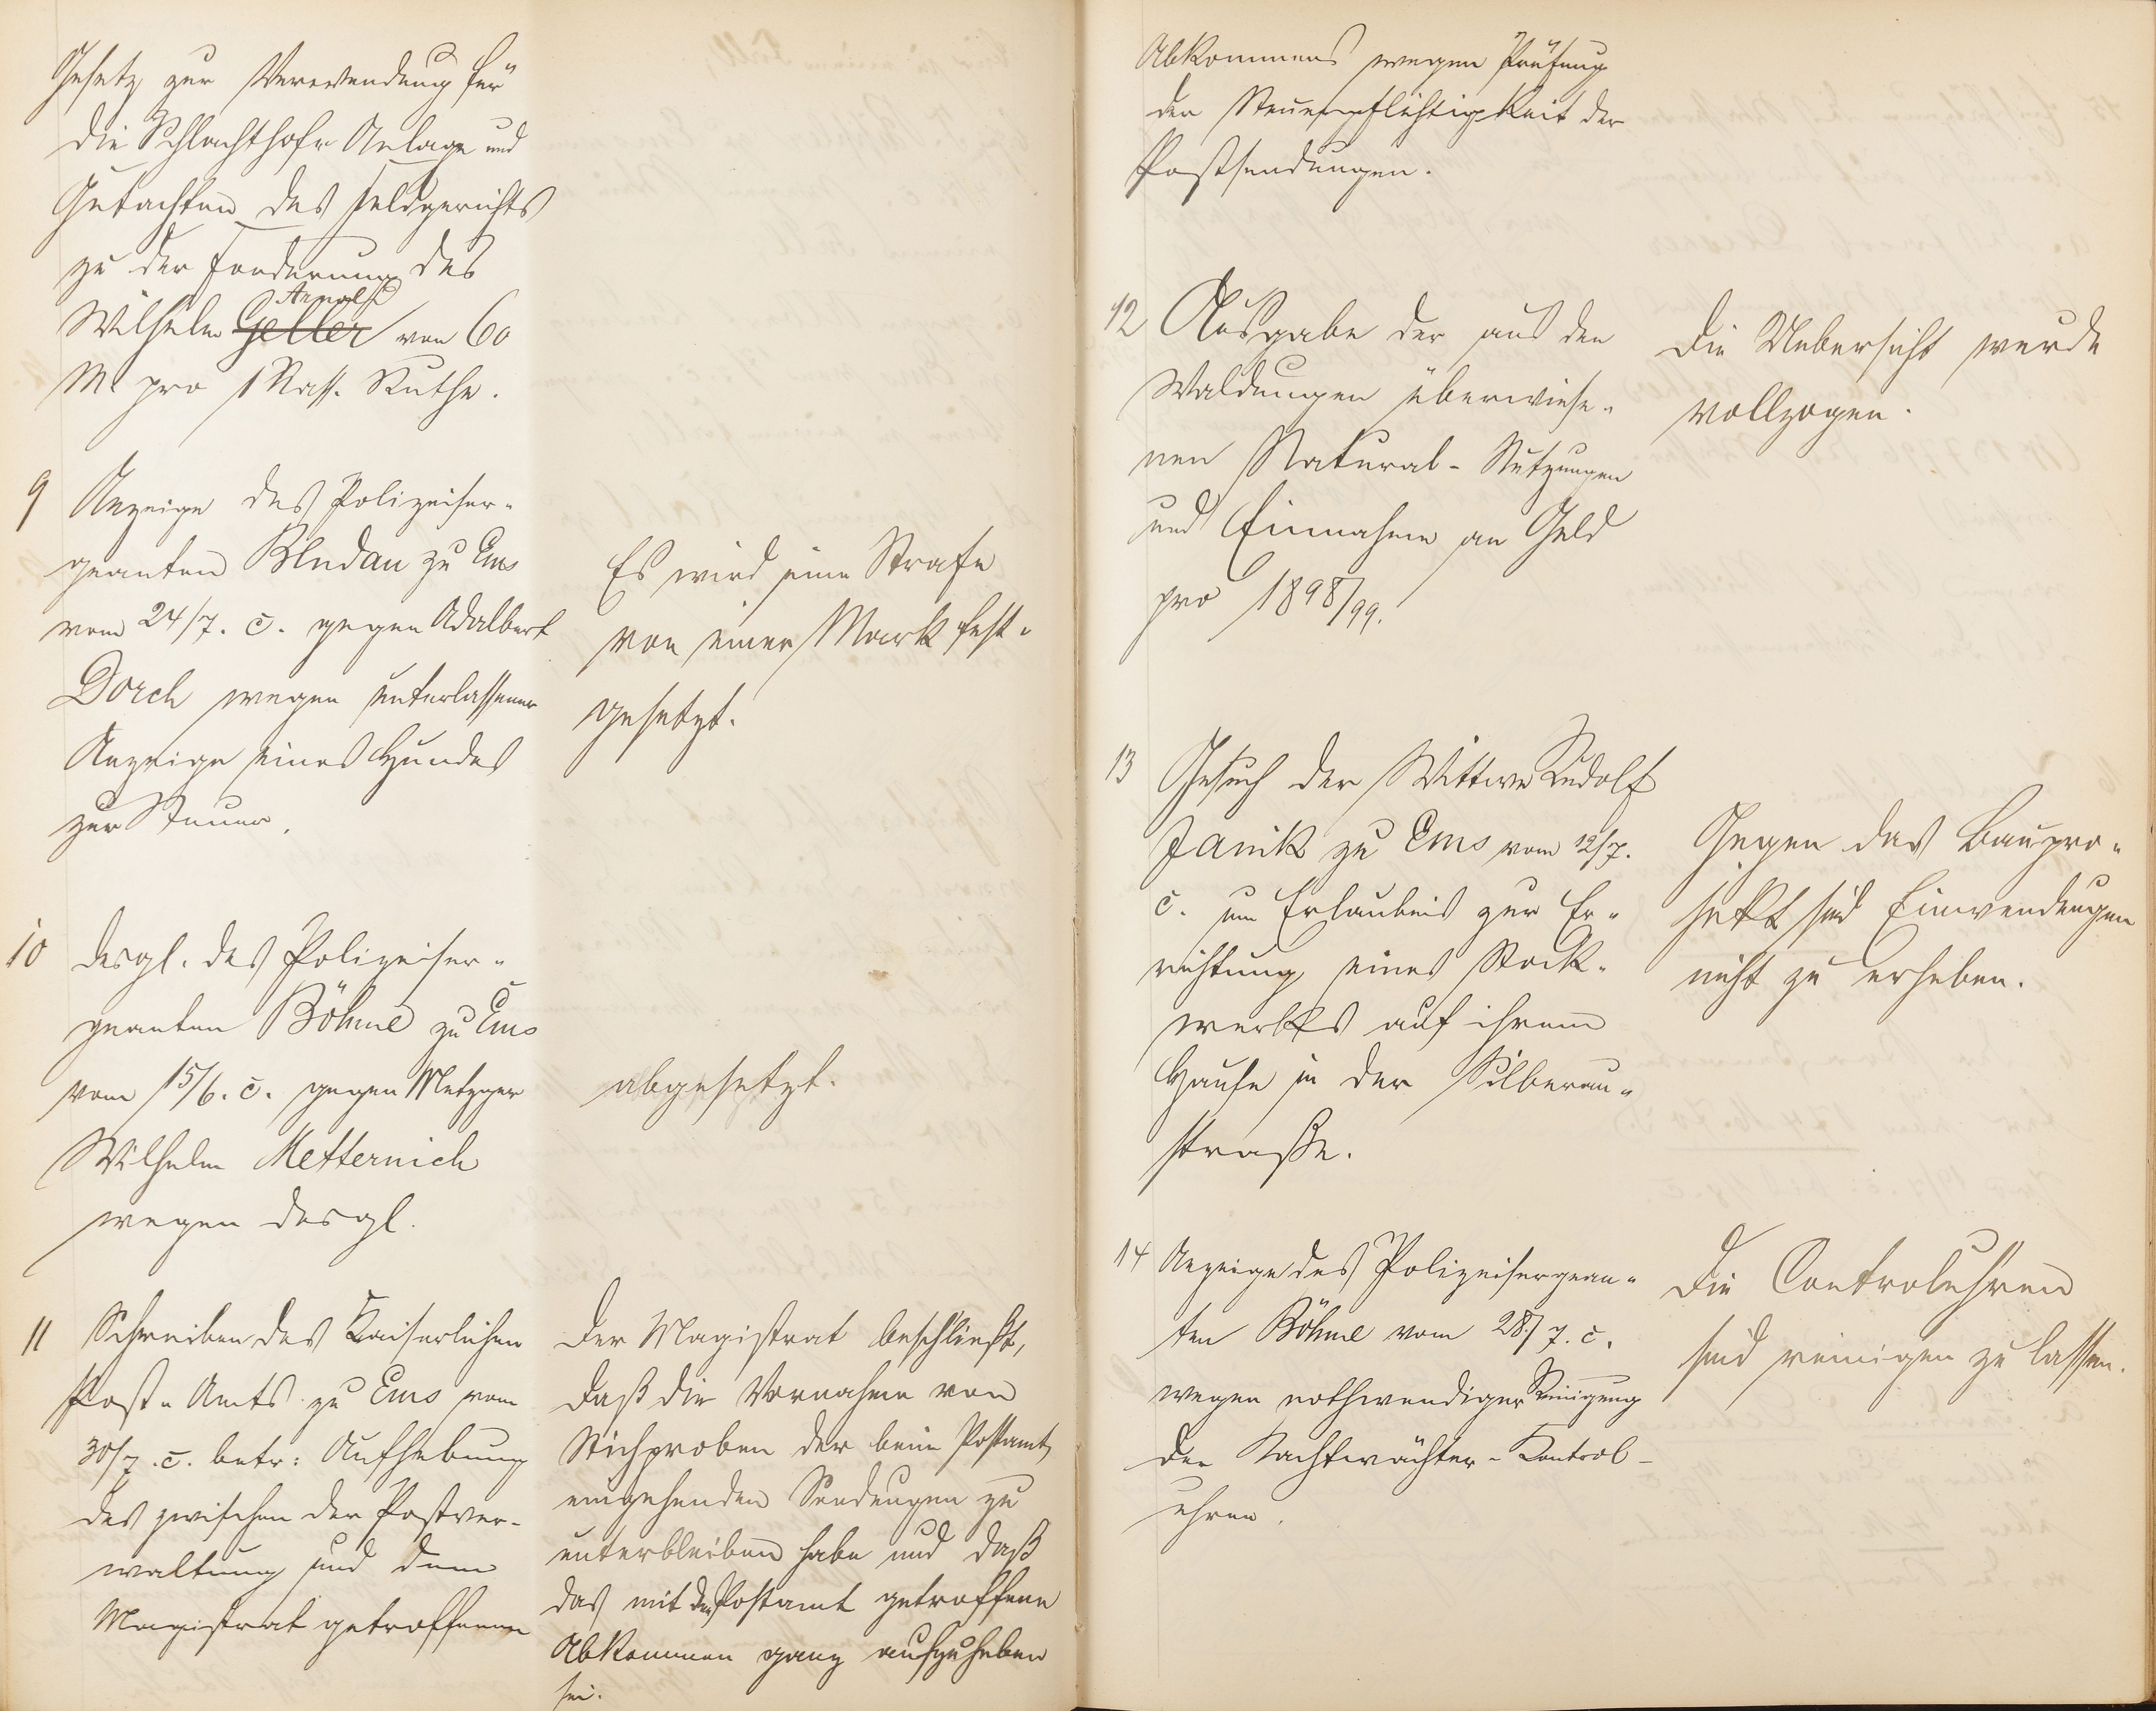 Gesetz zur Verwendung für
die Schlachthofs Anlage und
Gutachten des Feldgerichts
zu der Forderung des
Arnold
Wilhelm Geller von 60
M pro 1 Nass. Ruthe.
9 Anzeige des Polizeiser-
geanten Blndau zu Ems
vom 24/7. c. gegen Adalbert
Dorch wegen unterlassener
Anzeige eines Hundes
zur Steuer.
Es wird eine Strafe
von einer Mark fest-
gesetzt.
10 desgl. des Polizeiser-
geanten Böhme zu Ems
vom 15/6. c. gegen Metzger
Wilhelm Metternich
wegen desgl.
abgesetzt.
11 Schreiben des Kaiserlichen
Post-Amts zu Ems vom
30/7. c. betr: Aufhebung
des zwischen der Postver-
waltung und dem
Magistrat getroffenen
Der Magistrat beschließt,
daß die Vornahme von
Stichproben der beim Postamt
eingehenden Sendungen zu
unterbleiben habe und daß
das mit dem Postamt getroffene
Abkommen ganz aufzuheben
sei.
Abkommens wegen Prüfung
der Steuerpflichtigkeit der
Postsendungen.
12 Ausgabe der aus den
Waldungen überwiese-
nen Natural-Nutzungen
und Einnahme an Geld
pro 1898/99.
Die Uebersicht wurde
vollzogen.
13 Gesuch der Wittwe Rudolf
Janik zu Ems vom 12/7.
c. um Erlaubnis zur Er-
richtung eines Stock-
werkes auf ihrem
Hause in der Silberau-
straße.
Gegen das Baupro-
jekt sind Einwendungen
nicht zu erheben.
14 Anzeige des Polizeisergean-
ten Böhme vom 28/7. c.
wegen nothwendiger Reinigung
der Nachtwächter-Kontrol-
uhren.
Die Controluhren
sind reinigen zu lassen.